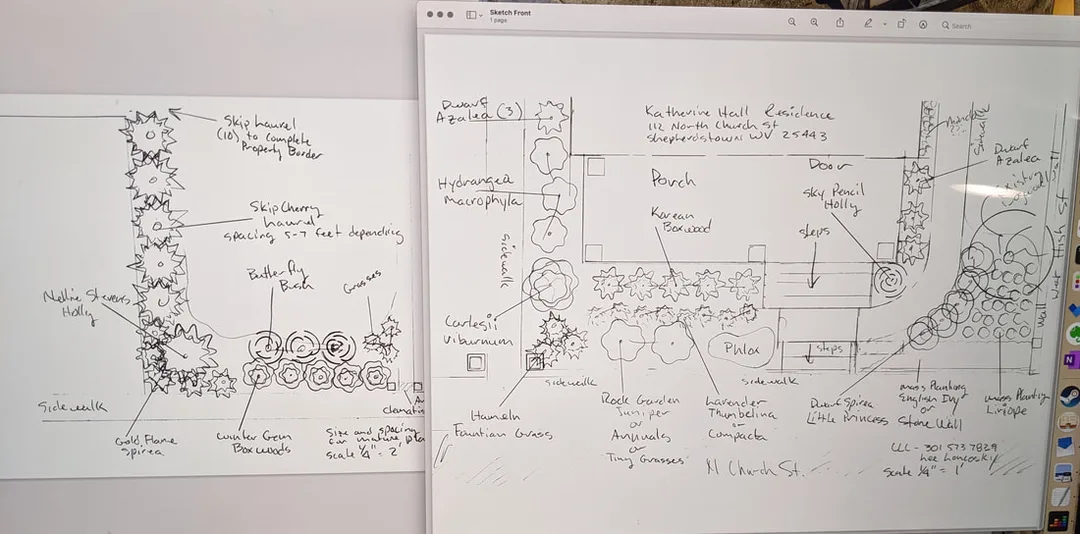 Skip Laurel
(10) to complete
Property Border
Skip Cherry
Laurel
spacing 5-7 feet depending
Butterfly
Bush
Grasses
Nellie Stevens
Holly
Sidewalk
Gold Flame
spirea
Winter Gem
Boxwoods
Size and spacing
scale 1/4" = 2'
Sketch Front
1 page
Search
Dwarf
Azalea (3)
Katherine Hall Residence
112 North Church St
Shepherdstown WV 25443
Hydrangea
Macrophyla
Porch
Door
Sky Pencil
Holly
Korean
Boxwood
steps
Dwarf
Azalea
Sidewalk
sidewalk
West High St
Wall
Carlesii
Viburnum
Phlox
steps
sidewalk
sidewalk
Hameln
Fountian Grass
Rock Garden
Juniper
or
Annuals
or
Tiny Grasses
Lavender
Thumbelina
or
Compacta
Dwarf Spirea
Little Princess
mass Planting
English Ivy
or
Stone Wall
mass Planting
Liriope
N Church St.
LLC - 301 573 7829
scale 1/4" = 1'